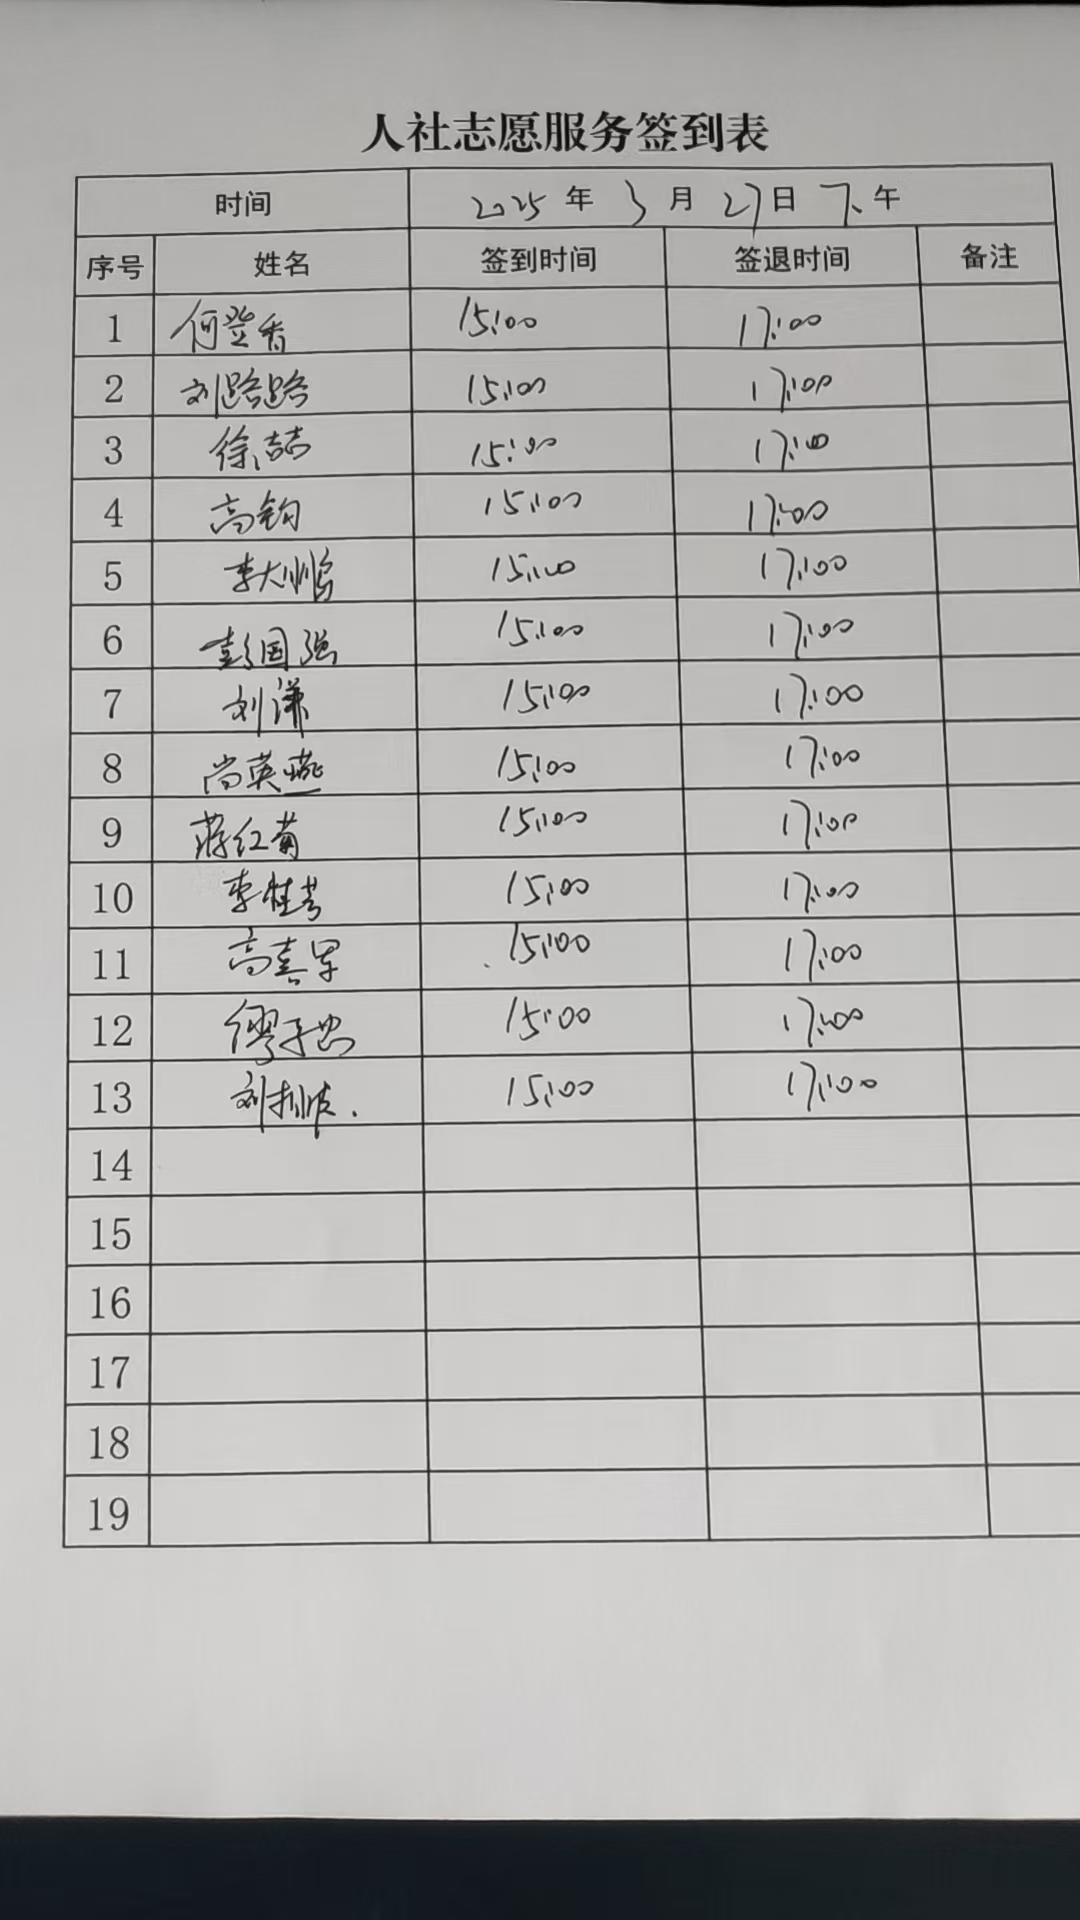 人社志愿服务签到表
时间 2025年3月27日下午
序号 姓名 签到时间 签退时间 备注
1 何登香 15:00 17:00
2 刘路路 15:00 17:00
3 徐喆 15:00 17:00
4 高钧 15:00 17:00
5 李大鹏 15:00 17:00
6 彭国强 15:00 17:00
7 刘谦 15:00 17:00
8 尚英燕 15:00 17:00
9 蒋红菊 15:00 17:00
10 李桂芳 15:00 17:00
11 15:00 17:00
12 15:00 17:00
13 15:00 17:00
14
15
16
17
18
19